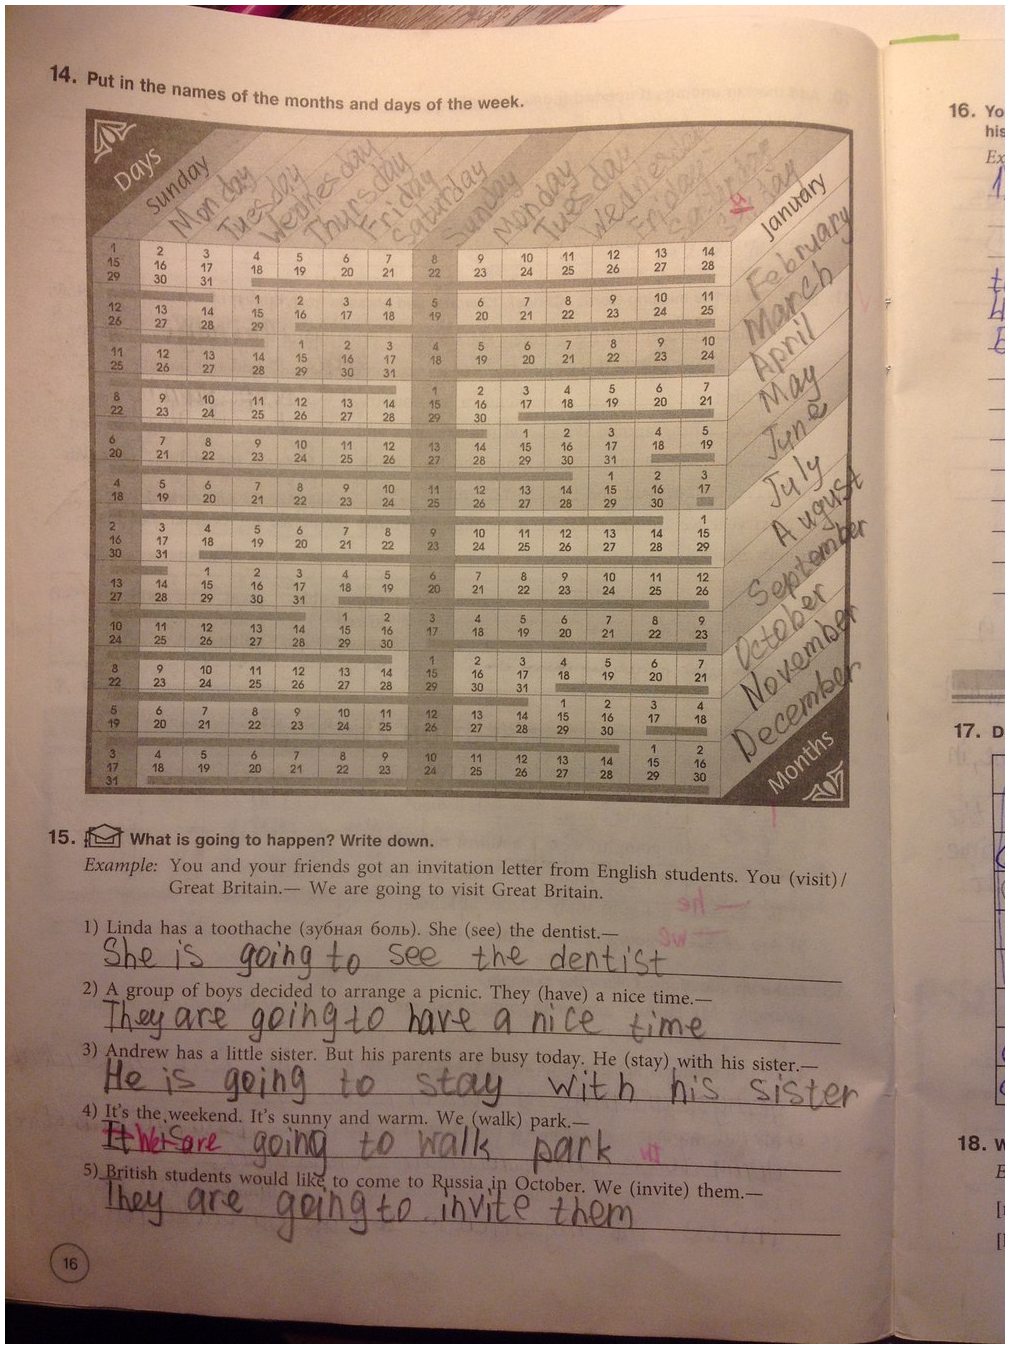 14. Put in the names of the months and days of the week.
Days
Sunday
Monday
Tuesday
Wednesday
Thursday
Friday
Saturday
Sunday
Monday
Tuesday
Wednesday
Friday
January
1 2 3 4 5 6 7 8 9 10 11 12 13 14
15 16 17 18 19 20 21 22 23 24 25 26 27 28
29 30 31
February
1 2 3 4 5 6 7 8 9 10 11
12 13 14 15 16 17 18 19 20 21 22 23 24 25
26 27 28 29
March
1 2 3 4 5 6 7 8 9 10
11 12 13 14 15 16 17 18 19 20 21 22 23 24
25 26 27 28 29 30 31
April
1 2 3 4 5 6 7
8 9 10 11 12 13 14 15 16 17 18 19 20 21
22 23 24 25 26 27 28 29 30
May
1 2 3 4 5
6 7 8 9 10 11 12 13 14 15 16 17 18 19
20 21 22 23 24 25 26 27 28 29 30 31
June
1 2 3
4 5 6 7 8 9 10 11 12 13 14 15 16 17
18 19 20 21 22 23 24 25 26 27 28 29 30
July
1
2 3 4 5 6 7 8 9 10 11 12 13 14 15
16 17 18 19 20 21 22 23 24 25 26 27 28 29
30 31
August
1 2 3 4 5 6 7 8 9 10 11 12
13 14 15 16 17 18 19 20 21 22 23 24 25 26
27 28 29 30 31
September
1 2 3 4 5 6 7 8 9
10 11 12 13 14 15 16 17 18 19 20 21 22 23
24 25 26 27 28 29 30
October
1 2 3 4 5 6 7
8 9 10 11 12 13 14 15 16 17 18 19 20 21
22 23 24 25 26 27 28 29 30 31
November
1 2 3 4
5 6 7 8 9 10 11 12 13 14 15 16 17 18
19 20 21 22 23 24 25 26 27 28 29 30
December
1 2
3 4 5 6 7 8 9 10 11 12 13 14 15 16
17 18 19 20 21 22 23 24 25 26 27 28 29 30
31
Months
15. What is going to happen? Write down.
Example: You and your friends got an invitation letter from English students. You (visit)/
Great Britain.— We are going to visit Great Britain.
1) Linda has a toothache (зубная боль). She (see) the dentist.—
She is going to see the dentist
2) A group of boys decided to arrange a picnic. They (have) a nice time.—
They are going to have a nice time
3) Andrew has a little sister. But his parents are busy today. He (stay) with his sister.—
He is going to stay with his sister
4) It's the weekend. It's sunny and warm. We (walk) park.—
It is We are going to walk park
5) British students would like to come to Russia in October. We (invite) them.—
They are going to invite them
16
16. Yo
his
Ex
17. D
18. W
E